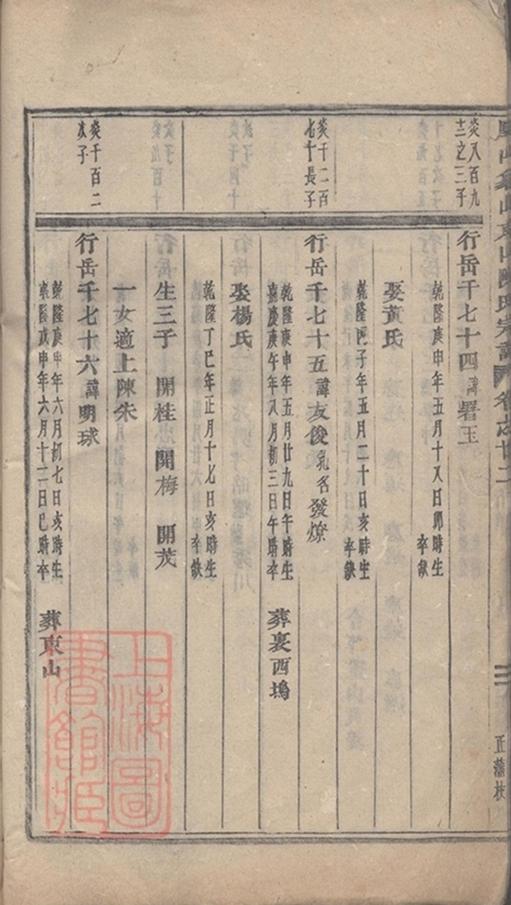 宗譜 卷之廿二
正蕭枝
炎八百九
十三之三子
行岳千七十四諱署玉
乾隆庚申年五月十八日卯時生
卒缺
娶黃氏
乾隆丙子年五月二十日亥時生
卒缺
炎千二百
七十長子
行岳千七十五諱友俊乳名發燎
乾隆庚申年五月廿九日午時生
嘉慶庚午年八月初三日午時卒
葬裏西塢
娶楊氏
乾隆丁巳年正月十七日亥時生
卒缺
生三子 開桂 開梅 開茂
一女適上陳朱
炎千百二
次子
行岳千七十六諱明球
乾隆庚申年六月初七日亥時生
乾隆戊申年六月十二日巳時卒
葬東山
上海圖
書館藏